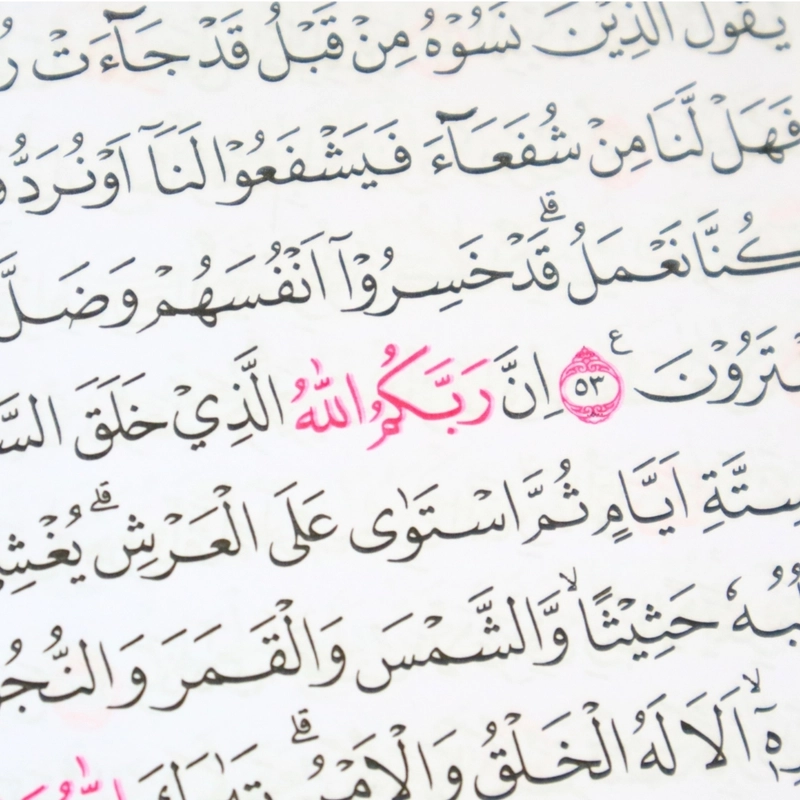 يَقُوْلُ الَّذِيْنَ نَسُوْهُ مِنْ قَبْلُ قَدْ جَاۤءَتْ
فَهَلْ لَّنَا مِنْ شُفَعَاۤءَ فَيَشْفَعُوْا لَنَآ اَوْ نُرَدُّ
كُنَّا نَعْمَلُۗ قَدْ خَسِرُوْٓا اَنْفُسَهُمْ وَضَلَّ
ـتَرُوْنَ ࣖ ٥٣ اِنَّ رَبَّكُمُ اللّٰهُ الَّذِيْ خَلَقَ السَّـ
سِتَّةِ اَيَّامٍ ثُمَّ اسْتَوٰى عَلَى الْعَرْشِۗ يُغْشِى
ـبُهٗ حَثِيْثًاۙ وَّالشَّمْسَ وَالْقَمَرَ وَالنُّجُـ
ـرِهٖٓ ۙاَلَا لَهُ الْخَلْقُ وَالْاَمْرُۗ تَبٰرَكَ اللّٰهُ